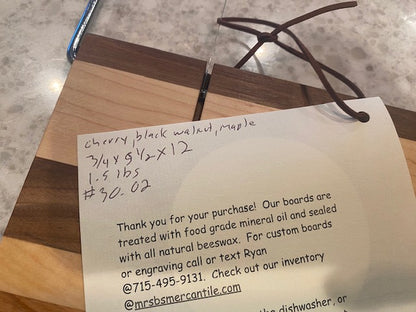 cherry, black walnut, maple
3/4 x 9 1/2 x 12
1.5 lbs
#30.02
Thank you for your purchase! Our boards are
treated with food grade mineral oil and sealed
with all natural beeswax. For custom boards
or engraving call or text Ryan
@715-495-9131. Check out our inventory
@mrsbsmercantile.com
the dishwasher, or